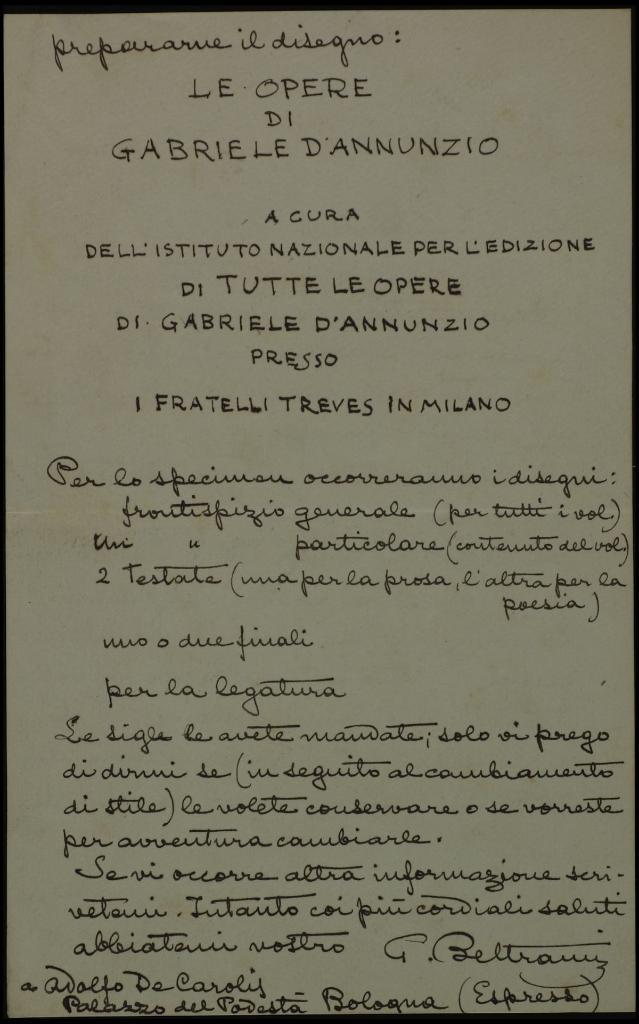 prepararne il disegno:
LE OPERE
DI
GABRIELE D'ANNUNZIO
A CURA
DELL'ISTITUTO NAZIONALE PER L'EDIZIONE
DI TUTTE LE OPERE
DI GABRIELE D'ANNUNZIO
PRESSO
I FRATELLI TREVES IN MILANO
Per lo specimen occorreranno i disegni:
frontispizio generale (per tutti i vol.)
Un " particolare (contenuto del vol.)
2 Testate (una per la prosa, l'altra per la
poesia)
uno o due finali
per la legatura
Le sigle le avete mandate; solo vi prego
di dirmi se (in seguito al cambiamento
di stile) le volete conservare o se vorreste
per avventura cambiarle.
Se vi occorre altra informazione scri-
vetemi. Intanto coi più cordiali saluti
abbiatemi vostro G. Beltrami
a Adolfo De Carolis
Palazzo del Podestà Bologna (Espresso)